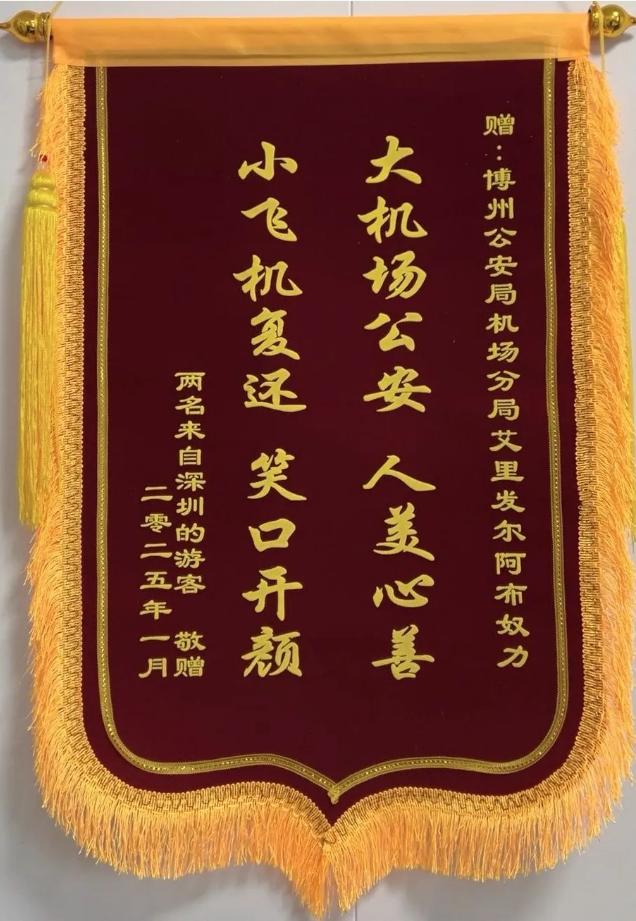 赠：博州公安局机场分局艾里发尔阿布奴力
大机场公安 人美心善
小飞机复还 笑口开颜
两名来自深圳的游客 敬赠
二零二五年一月